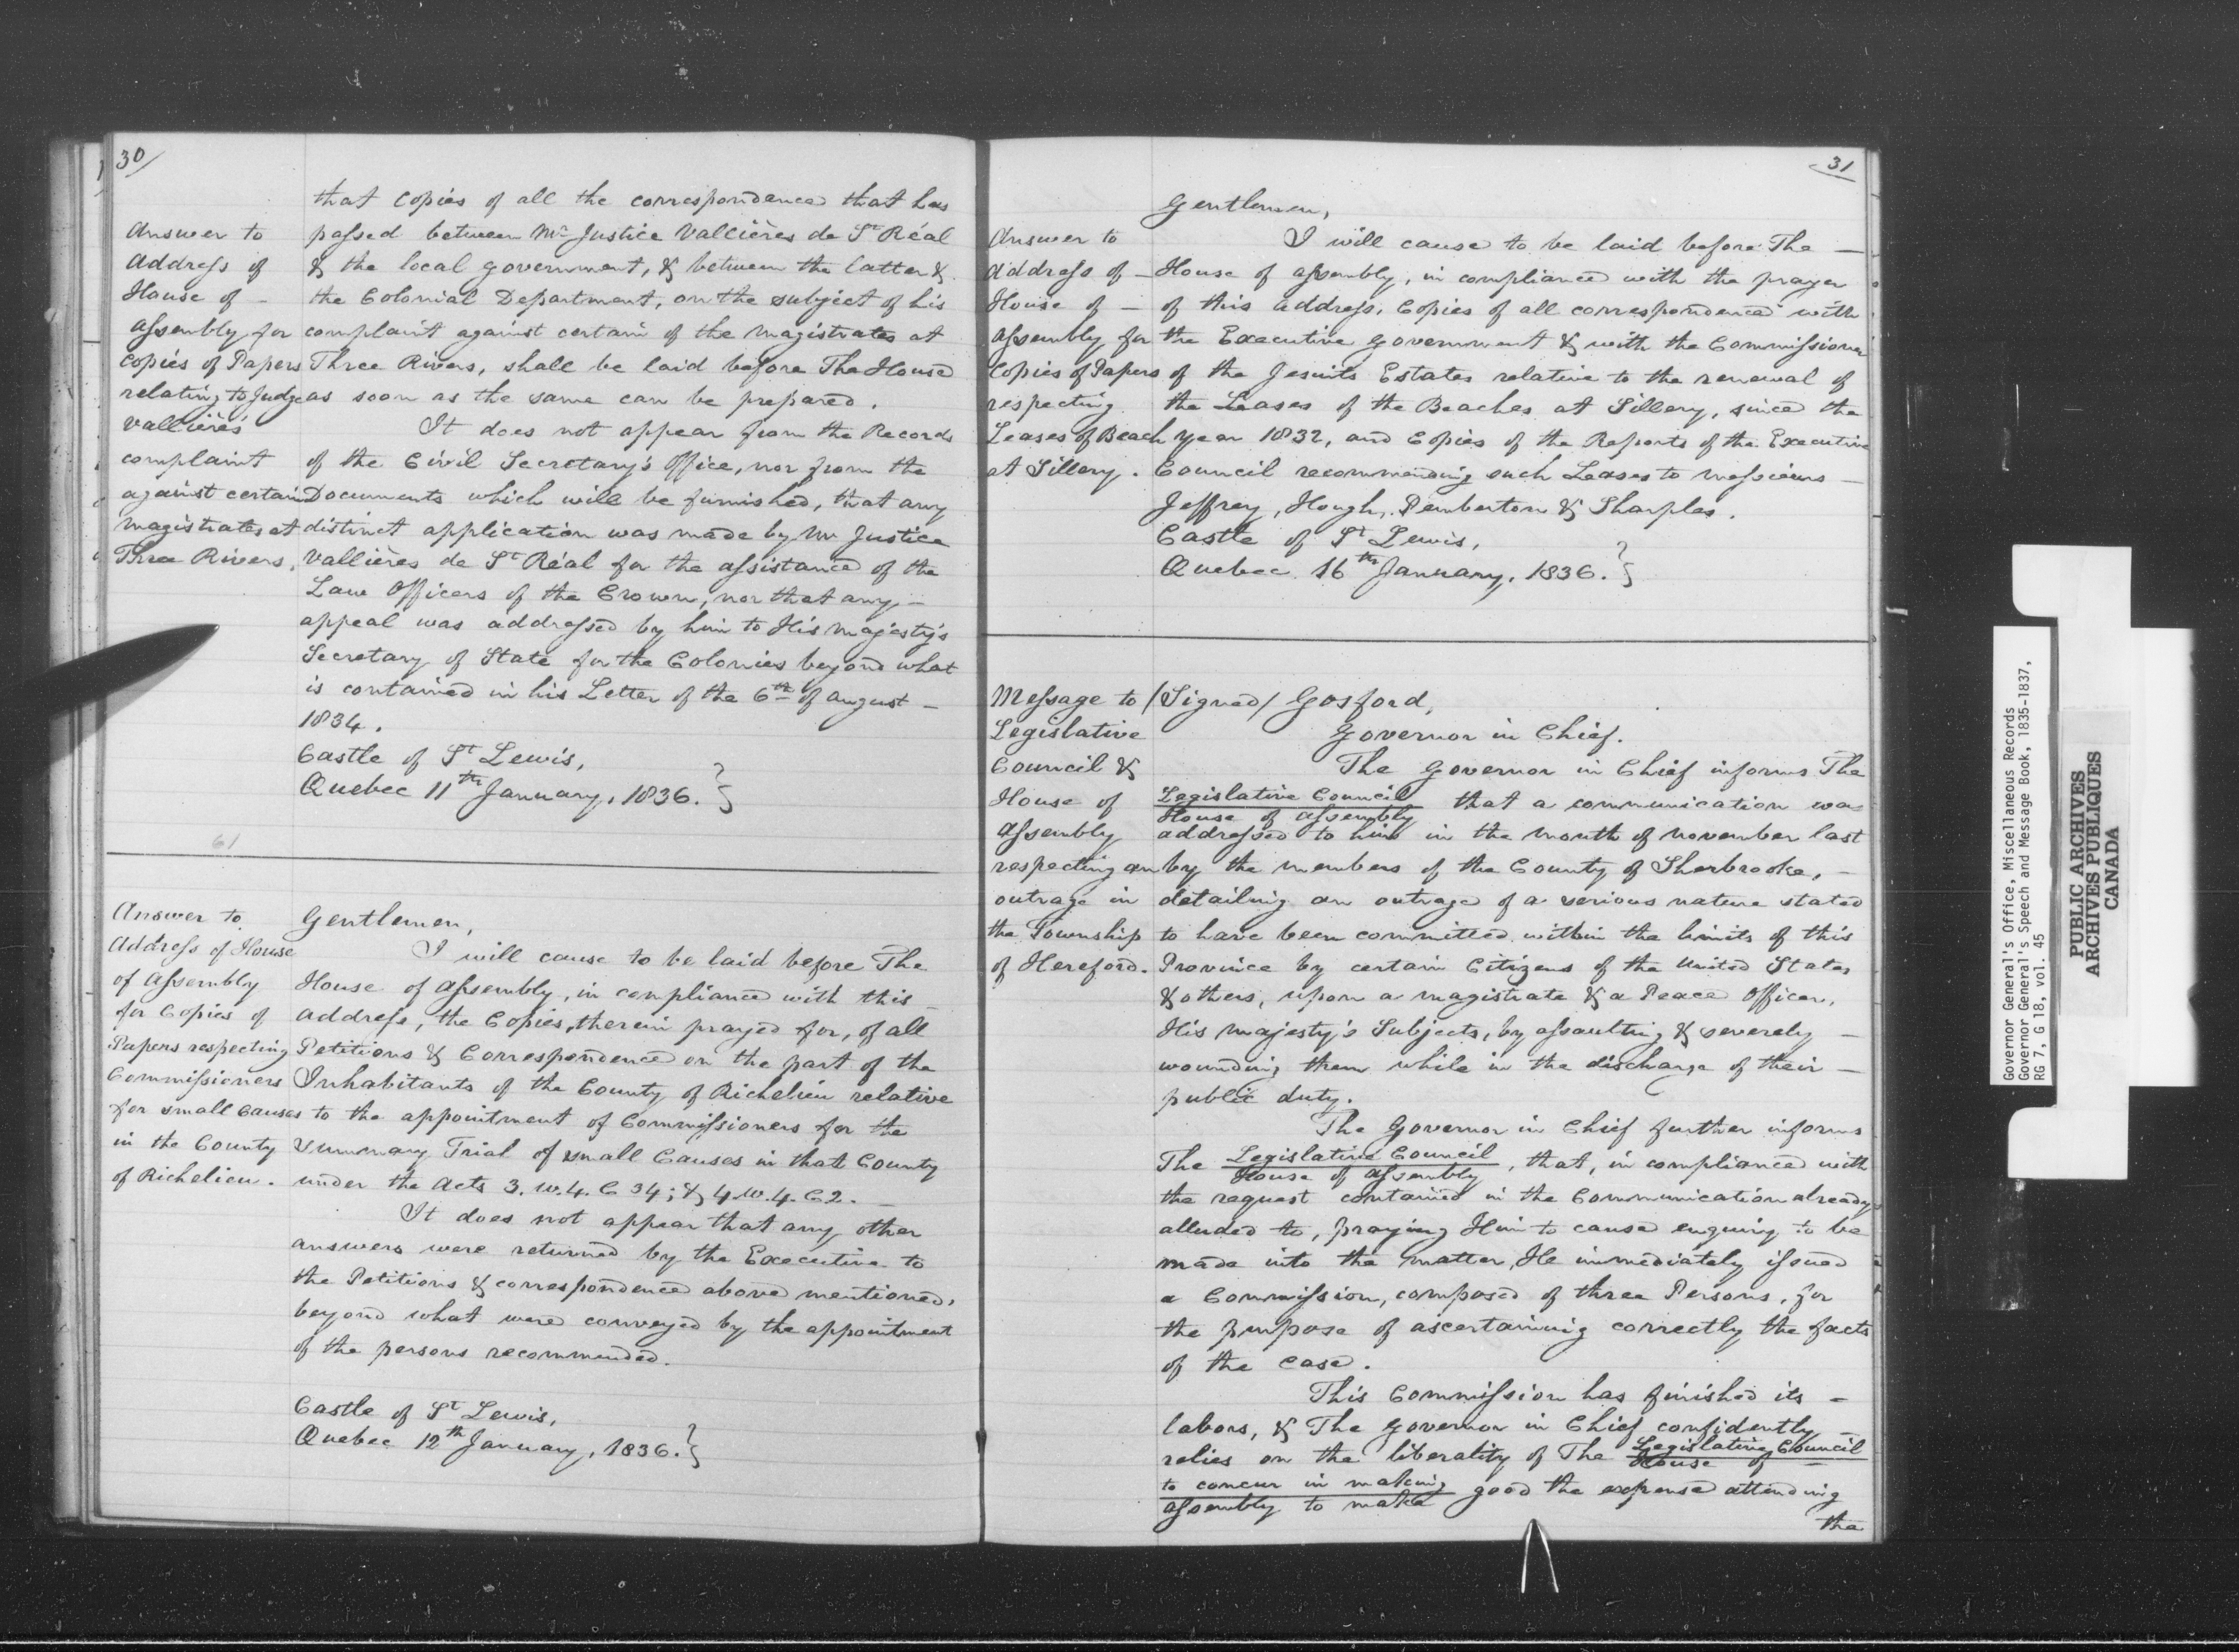 30/
that Copies of all the correspondence that has
passed between Mr Justice Vallières de St Réal
& the local government, & between the latter &
the Colonial Department, on the subject of his
complaint against certain of the Magistrates at
Three Rivers, shall be laid before The House
as soon as the same can be prepared.
It does not appear from the Records
of the Civil Secretary's Office, nor from the
Documents which will be furnished, that any
distinct application was made by Mr Justice
Vallières de St Réal for the assistance of the
Law Officers of the Crown, nor that any –
appeal was addressed by him to His Majesty's
Secretary of State for the Colonies beyond what
is contained in his Letter of the 6th of August –
1834.
Castle of St Lewis,
Quebec 11th January, 1836. }
Answer to
Address of
House of –
Assembly for
Copies of Papers
relating to Judge
Vallière's
complaint
against certain
Magistrates at
Three Rivers.
61
Answer to
Address of House
of Assembly
for Copies of
Papers respecting
Commissioners
for small Causes
in the County
of Richelieu.
Gentlemen,
I will cause to be laid before The
House of Assembly, in compliance with this –
Address, the Copies, therein prayed for, of all
Petitions & Correspondence on the part of the
Inhabitants of the County of Richelieu relative
to the appointment of Commissioners for the
Summary Trial of small Causes in that County
under the Acts 3. W. 4. C 34; & 4. W. 4. C 2. –
It does not appear that any other
answers were returned by the Executive to
the Petitions & correspondence above mentioned,
beyond what were conveyed by the appointment
of the persons recommended.
Castle of St Lewis,
Quebec 12th January, 1836. }
31
Answer to
Address of –
House of –
Assembly for
Copies of Papers
respecting
Leases of Beach
at Sillery.
Gentlemen,
I will cause to be laid before The –
House of Assembly, in compliance with the prayer
of this Address, Copies of all correspondence with
the Executive Government & with the Commissioner
of the Jesuits Estates relative to the renewal of
the Leases of the Beaches at Sillery, since the
year 1832, and Copies of the Reports of the Executive
Council recommending such Leases to Messieurs –
Jeffrey, Hough, Pemberton & Sharples.
Castle of St Lewis,
Quebec 16th January, 1836. }
Message to
Legislative
Council &
House of
Assembly
respecting an
outrage in
the Township
of Hereford.
/Signed/ Gosford,
Governor in Chief.
The Governor in Chief informs The
Legislative Council
House of Assembly
that a communication was
addressed to him in the month of November last
by the members of the County of Sherbrooke, –
detailing an outrage of a serious nature stated
to have been committed within the limits of this
Province by certain Citizens of the United States
& others, upon a Magistrate & a Peace Officer,
His Majesty's Subjects, by assaulting & severely –
wounding them while in the discharge of their –
public duty.
The Governor in Chief further informs
The Legislative Council
House of Assembly
, that, in compliance with
the request contained in the Communication already
alluded to, praying Him to cause enquiry to be
made into the matter, He immediately issued
a Commission, composed of three Persons, for
the purpose of ascertaining correctly the facts
of the case.
This Commission has finished its –
labors, & The Governor in Chief confidently –
relies on the liberality of The Legislative Council
House of –
to concur in making
Assembly to make
good the expense attending
the
Governor General's Office, Miscellaneous Records
Governor General's Speech and Message Book, 1835-1837,
RG 7, G 18, vol. 45
PUBLIC ARCHIVES
ARCHIVES PUBLIQUES
CANADA